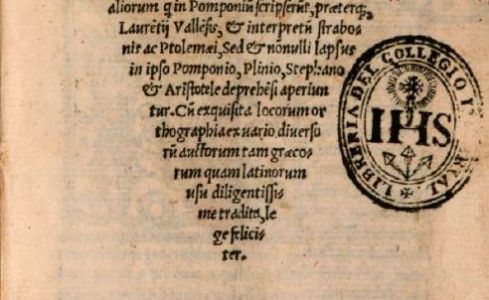 aliorum q in Pomponiū scripserūt, præterq;
Laurētij Vallēsis, & interpretū strabo
nis ac Ptolemæi, Sed & nōnulli lapsus
in ipso Pomponio, Plinio, Stephano
& Aristotele deprehēsi aperiun
tur. Cū exquisita locorum or
thographia ex uario, diverso
rū auctorum tam græco-
rum quam latinorum
usu diligentissi
me tradita, le
ge felici-
ter.
LIBRERIA DEL COLLEGIO
IHS